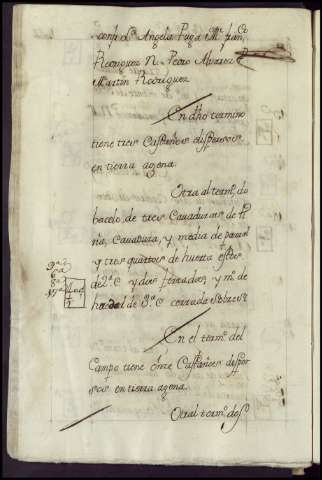 conf. Dn. Angela Puga Ml. Franco
Rodriguez N. Pedro Alvarez
Martin Rodriguez
En dho termino
tiene tres Castaños dispersos
en tierra agena
Otra al term. do
bacelo, de tres Cavaduras de
ña, Cavadura, y media de
y tres quartos de huerta
de 2ª C y dos ferrados, y mº de
de 3ª C cerrada sobre si
En el termº del
Campo tiene Castaños disper
sos en tierra agena.
Otra al termº de